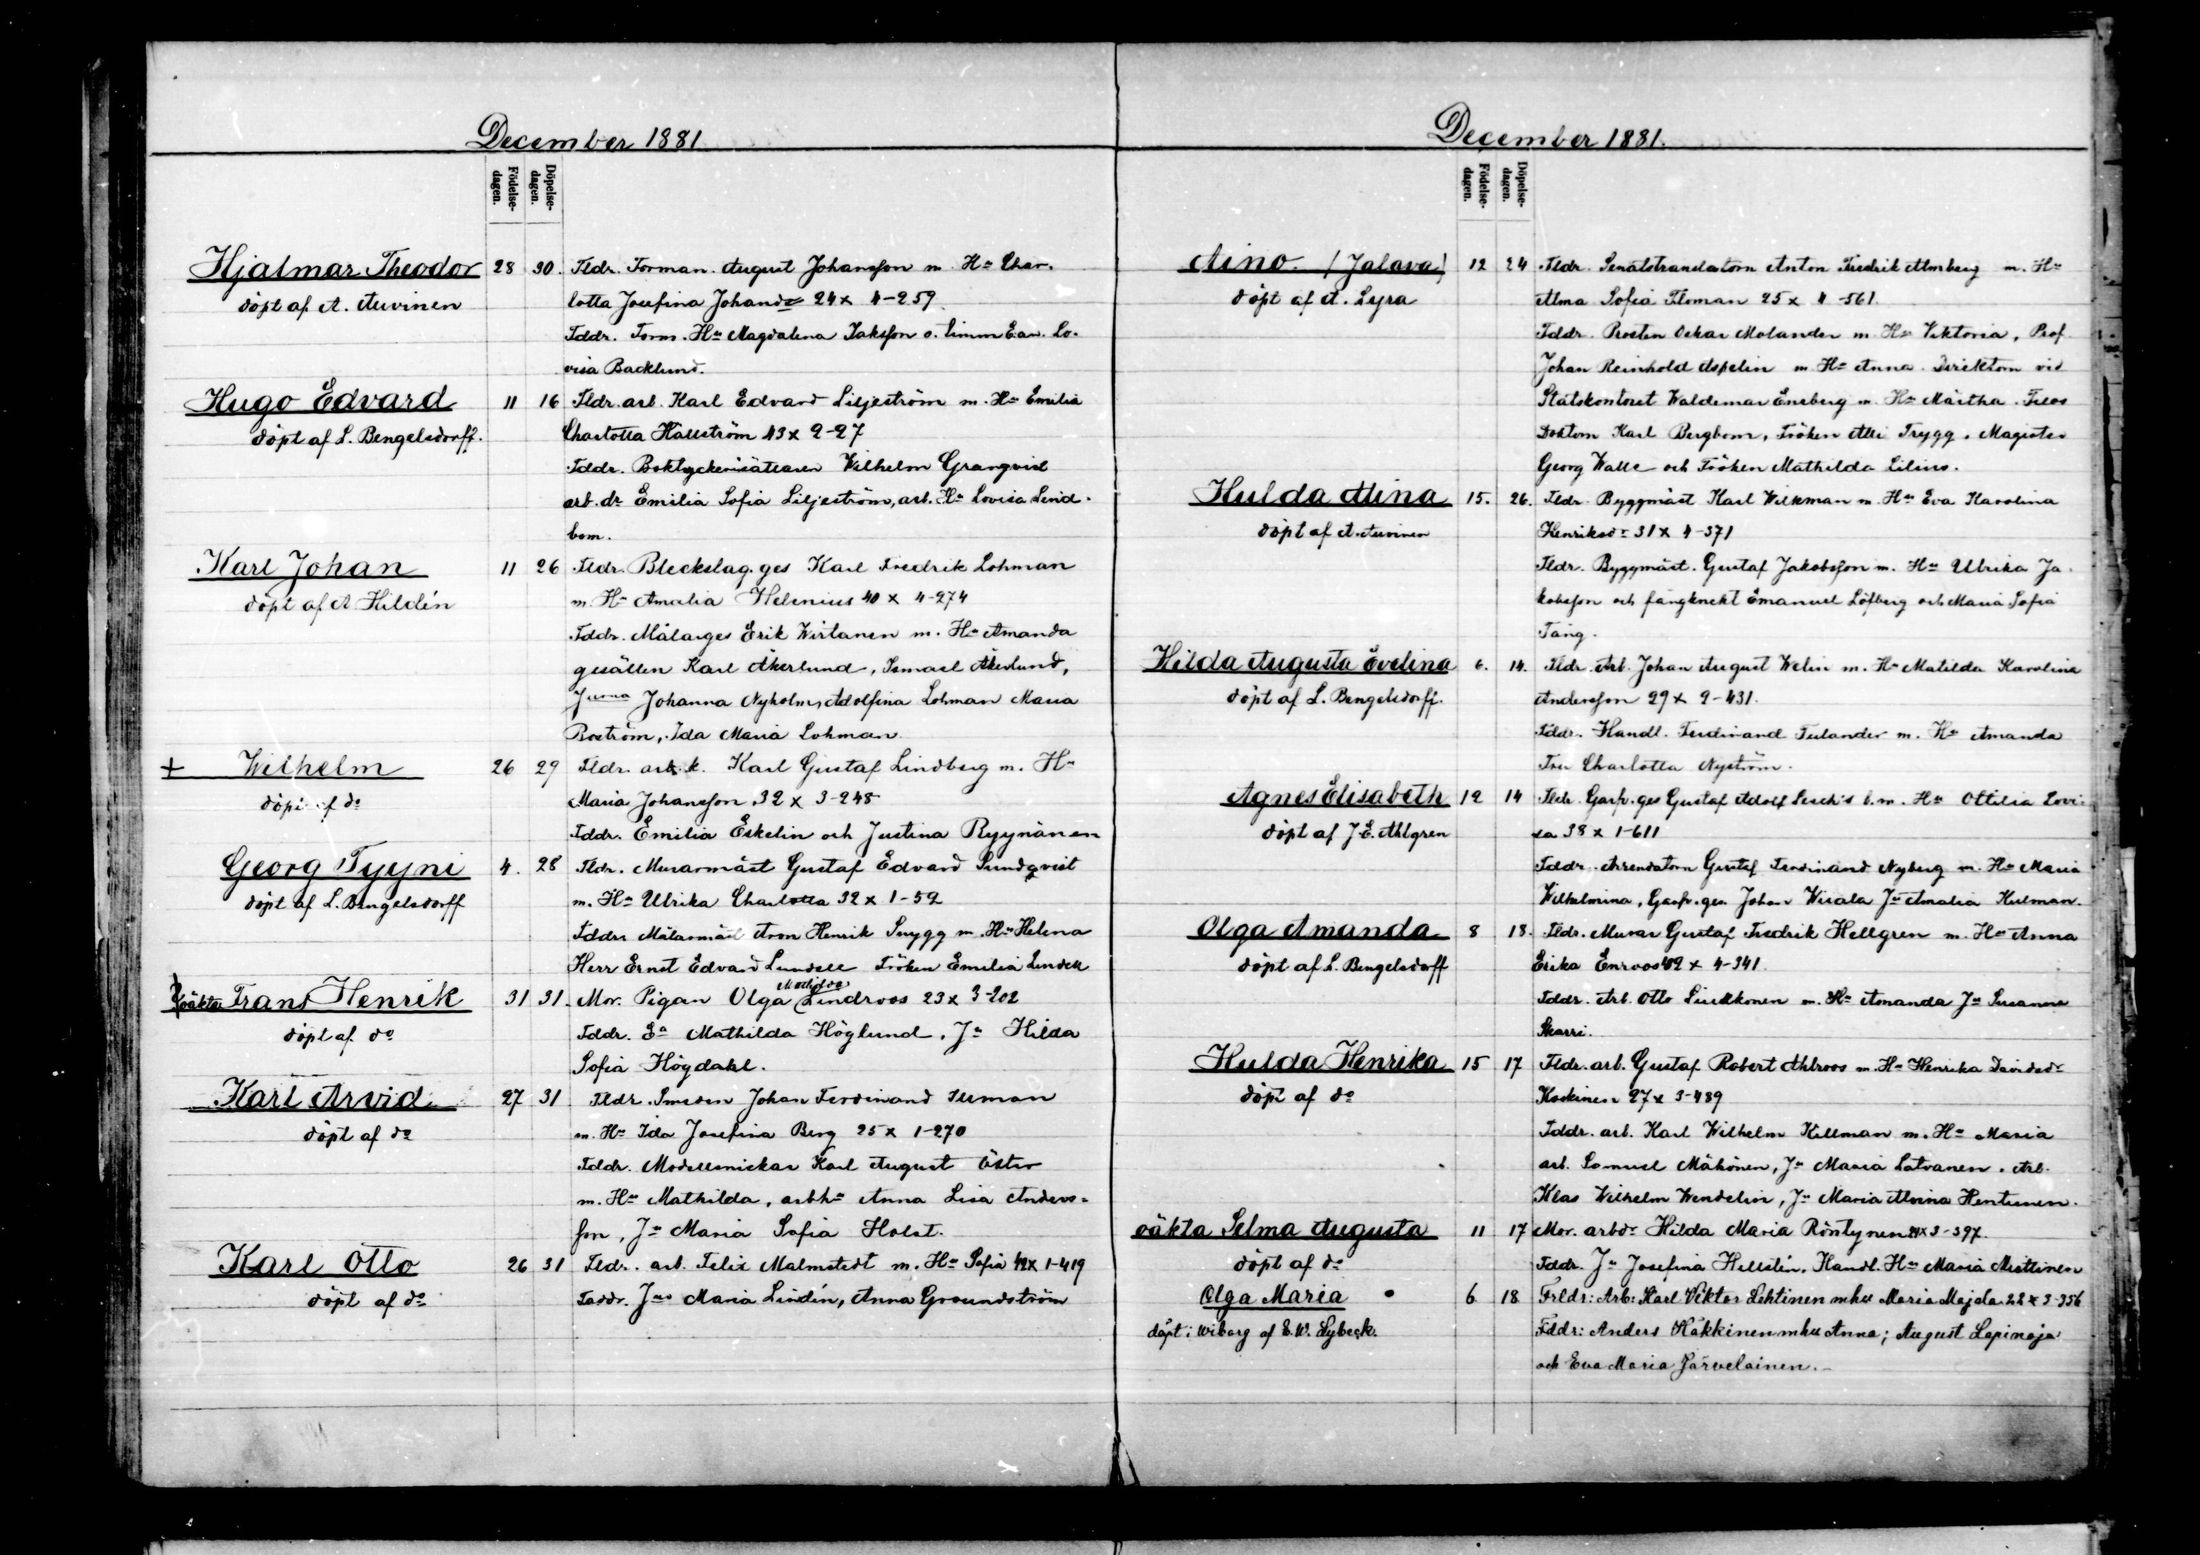 December 1881
Födelse-dagen.
Döpelse-dagen.
Hjalmar Theodor 28 30. Fldr. Forman. August Johansson m. Hu Char-
döpt af A. Auvinen lotta Josefina Johansdr 24 x 4-259
Fddr. Form. Hu Magdalena Isaksson o. Timm E:an. Lo-
visa Backlund.
Hugo Edvard 11 16 Fldr. arb. Karl Edvard Liljeström m. Hu Emilia
döpt af L. Bengelsdorff. Charlotta Hällström 43 x 2-27
Fddr. Boktryckerisätaren Wilhelm Granqvist
arb. dr Emilia Sofia Liljeström, arb. Hu Lovisa Lind-
bom.
Karl Johan 11 26 Fldr. Bleckslag. ges Karl Fredrik Lohman
döpt af A Hildén m. Hu Amalia Helenius 40 x 4-274
Fddr. Målarges Erik Wirtanen m. Hu Amanda
gesällen Karl Åkerlund, Ismael Åkerlund,
Jurna Johanna Nyholm, Adolfina Lohman Maria
Boström, Ida Maria Lohman
+ Wilhelm 26 29 Fldr. arb. k. Karl Gustaf Lindberg m. Hu
döpt af do Maria Johansson 32 x 3-248
Fddr. Emilia Eskelin och Justina Ryynänen
Georg Tyyni 4. 28 Fldr. Murarmäst Gustaf Edvard Sundqvist
döpt af L. Bengelsdorff m. Hu Ulrika Charlotta 32 x 1-52
Fddr. Målarmäst Aron Henrik Snygg m. Hu Helena
Herr Ernst Edvard Lundell Fröken Emilia Lindell
oäkta Frans Henrik 31 31. Mor. Pigan Olga Matilda Lindroos 23 x 3-202
döpt af do Fddr. Ea Mathilda Höglund, Ja Hilda
Sofia Högdahl.
Karl Arvid 27 31 Fldr. Smeden Johan Ferdinand
döpt af do m. Hu Ida Josefina Berg 25 x 1-270
Fddr. Modellsnickar Karl August Öster
m. Hu Mathilda, arbhu Anna Lisa Anders-
son, Ja Maria Sofia Holst.
Karl Otto 26 31 Fldr. arb. Felix Malmstedt m. Hu Sofia 42 x 1-419
döpt af do Faddr. Jnor Maria Lindén, Anna Groundström
December 1881.
Födelse-dagen.
Döpelse-dagen.
Aino. (Jalava) 12 24 Fldr. Senatstranslatorn Anton Fredrik Almberg m. Hu
döpt af A. Lyra Alma Sofia Floman 25 x 4-561
Fddr. Prosten Oskar Molander m. Hu Viktoria, Prof.
Johan Reinhold Aspelin m. Hu Anna. Direktorn vid
Statskontoret Waldemar Eneberg m. Hu Märtha. Filos
Doktorn Karl Bergbom, Fröken Alli Trygg, Magister
Georg Walle och Fröken Mathilda Lilius.
Hulda Alina 15. 26. Fldr. Byggmäst Karl Wilkman m. Hu Eva Karolina
döpt af A. Auvinen Henriksdr 31 x 4-371
Fldr. Byggmäst. Gustaf Jakobsson m. Hu Ulrika Ja-
kobsson och fångknekt Emanuel Löfberg och Maria Sofia
Tång.
Hilda Augusta Evelina 6. 14. Fldr. Arb. Johan August Welin m. Hu Matilda Karolina
döpt af L. Bengelsdorff. Andersson 29 x 2-431.
Fddr. Handl. Ferdinand Tulander m. Hu Amanda
Fru Charlotta Nyström.
Agnes Elisabeth 12 14 Fldr. Garfv. ges Gustaf Adolf b. m. Hu Ottilia Lovi-
döpt af J. E. Ahlgren sa 38 x 1-611
Fddr. Arrendatorn Gustaf Ferdinand Nyberg m. Hu Maria
Wilhelmina, Garfv. ges. Johan Wisala Ja Amalia Kulman.
Olga Amanda 8 18. Fldr. Murar Gustaf Fredrik Hellgren m. Hu Anna
döpt af L. Bengelsdorff Erika Enroos 42 x 4-341
Fddr. Arb. Otto m. Hu Amanda Ja Susanna
Skarri.
Hulda Henrika 15 17 Fldr. arb. Gustaf Robert Ahlroos m. Hu Henrika Davidsdr
döpt af do Koskinen 27 x 3-489
Fddr. arb. Karl Wilhelm Kellman m. Hu Maria
arb. Samuel Mähönen, Ja Maria Latvanen. Arb.
Klas Wilhelm Wendelin, Ja Maria Alvina Hentunen.
oäkta Selma Augusta 11 17 Mor. arbdr Hilda Maria Röntynen 21 x 3-397.
döpt af do Fddr. Ja Josefina Hellstén, Handl. Hu Maria Miettinen
Olga Maria 6 18 Frldr: Arb: Karl Viktor Lehtinen mhu Maria Majda 22 x 3-356
döpt i Wiborg af E. W. Lybeck. Fddr: Anders Häkkinen mhu Anna; August Lepinoja
och Eva Maria Järveläinen.